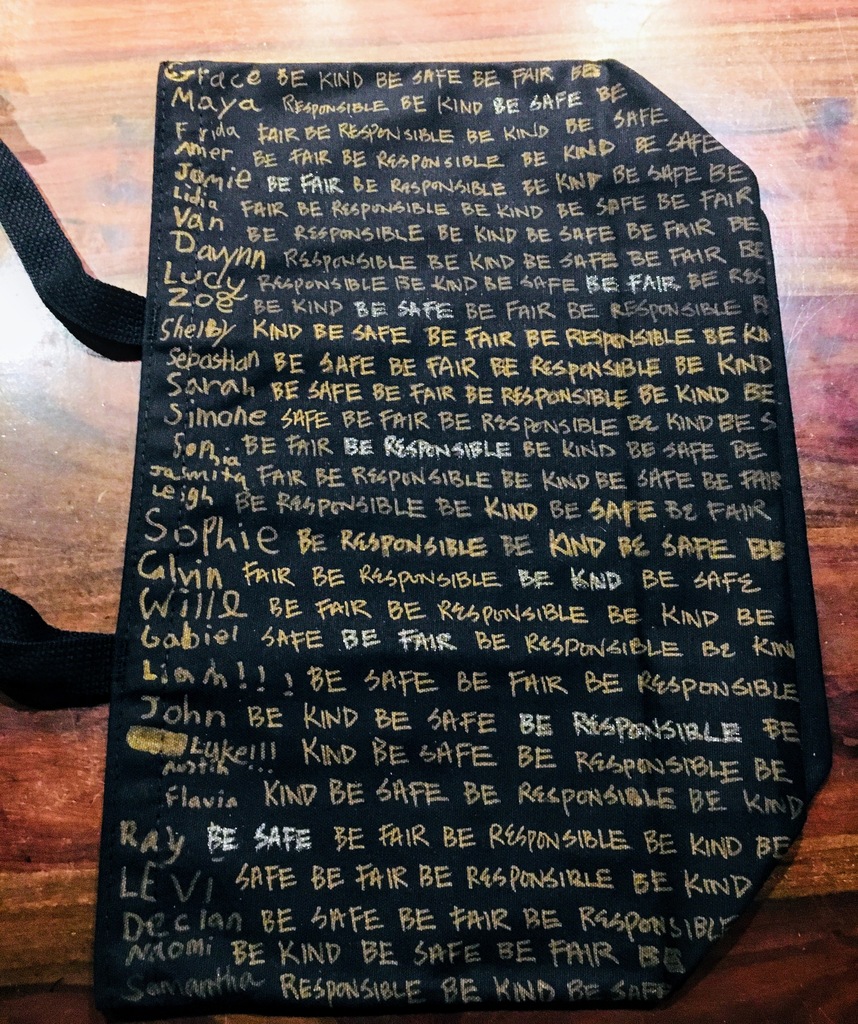 Grace BE KIND BE SAFE BE FAIR BE
Maya RESPONSIBLE BE KIND BE SAFE BE
Frida FAIR BE RESPONSIBLE BE KIND BE SAFE
Amer BE FAIR BE RESPONSIBLE BE KIND BE SAFE
Jamie BE FAIR BE RESPONSIBLE BE KIND BE SAFE BE
Lidia FAIR BE RESPONSIBLE BE KIND BE SAFE BE FAIR
Van BE RESPONSIBLE BE KIND BE SAFE BE FAIR BE
Davynn RESPONSIBLE BE KIND BE SAFE BE FAIR BE
Lucy RESPONSIBLE BE KIND BE SAFE BE FAIR BE RES
Zoe BE KIND BE SAFE BE FAIR BE RESPONSIBLE B
Shelby KIND BE SAFE BE FAIR BE RESPONSIBLE BE KIN
Sebastian BE SAFE BE FAIR BE RESPONSIBLE BE KIND
Sarah BE SAFE BE FAIR BE RESPONSIBLE BE KIND BE
Simone SAFE BE FAIR BE RESPONSIBLE BE KIND BE S
Sophia BE FAIR BE RESPONSIBLE BE KIND BE SAFE BE
Jasmita FAIR BE RESPONSIBLE BE KIND BE SAFE BE FAIR
Leigh BE RESPONSIBLE BE KIND BE SAFE BE FAIR
Sophie BE RESPONSIBLE BE KIND BE SAFE BE
Calvin FAIR BE RESPONSIBLE BE KIND BE SAFE
Will BE FAIR BE RESPONSIBLE BE KIND BE
Gabiel SAFE BE FAIR BE RESPONSIBLE BE KIN
Liam!!! BE SAFE BE FAIR BE RESPONSIBLE
John BE KIND BE SAFE BE RESPONSIBLE BE
Luke!!! KIND BE SAFE BE RESPONSIBLE BE
Austin
Flavia KIND BE SAFE BE RESPONSIBLE BE KIND
Ray BE SAFE BE FAIR BE RESPONSIBLE BE KIND BE
LEVI SAFE BE FAIR BE RESPONSIBLE BE KIND
Declan BE SAFE BE FAIR BE RESPONSIBLE
Naomi BE KIND BE SAFE BE FAIR BE
Samantha RESPONSIBLE BE KIND BE SAFE